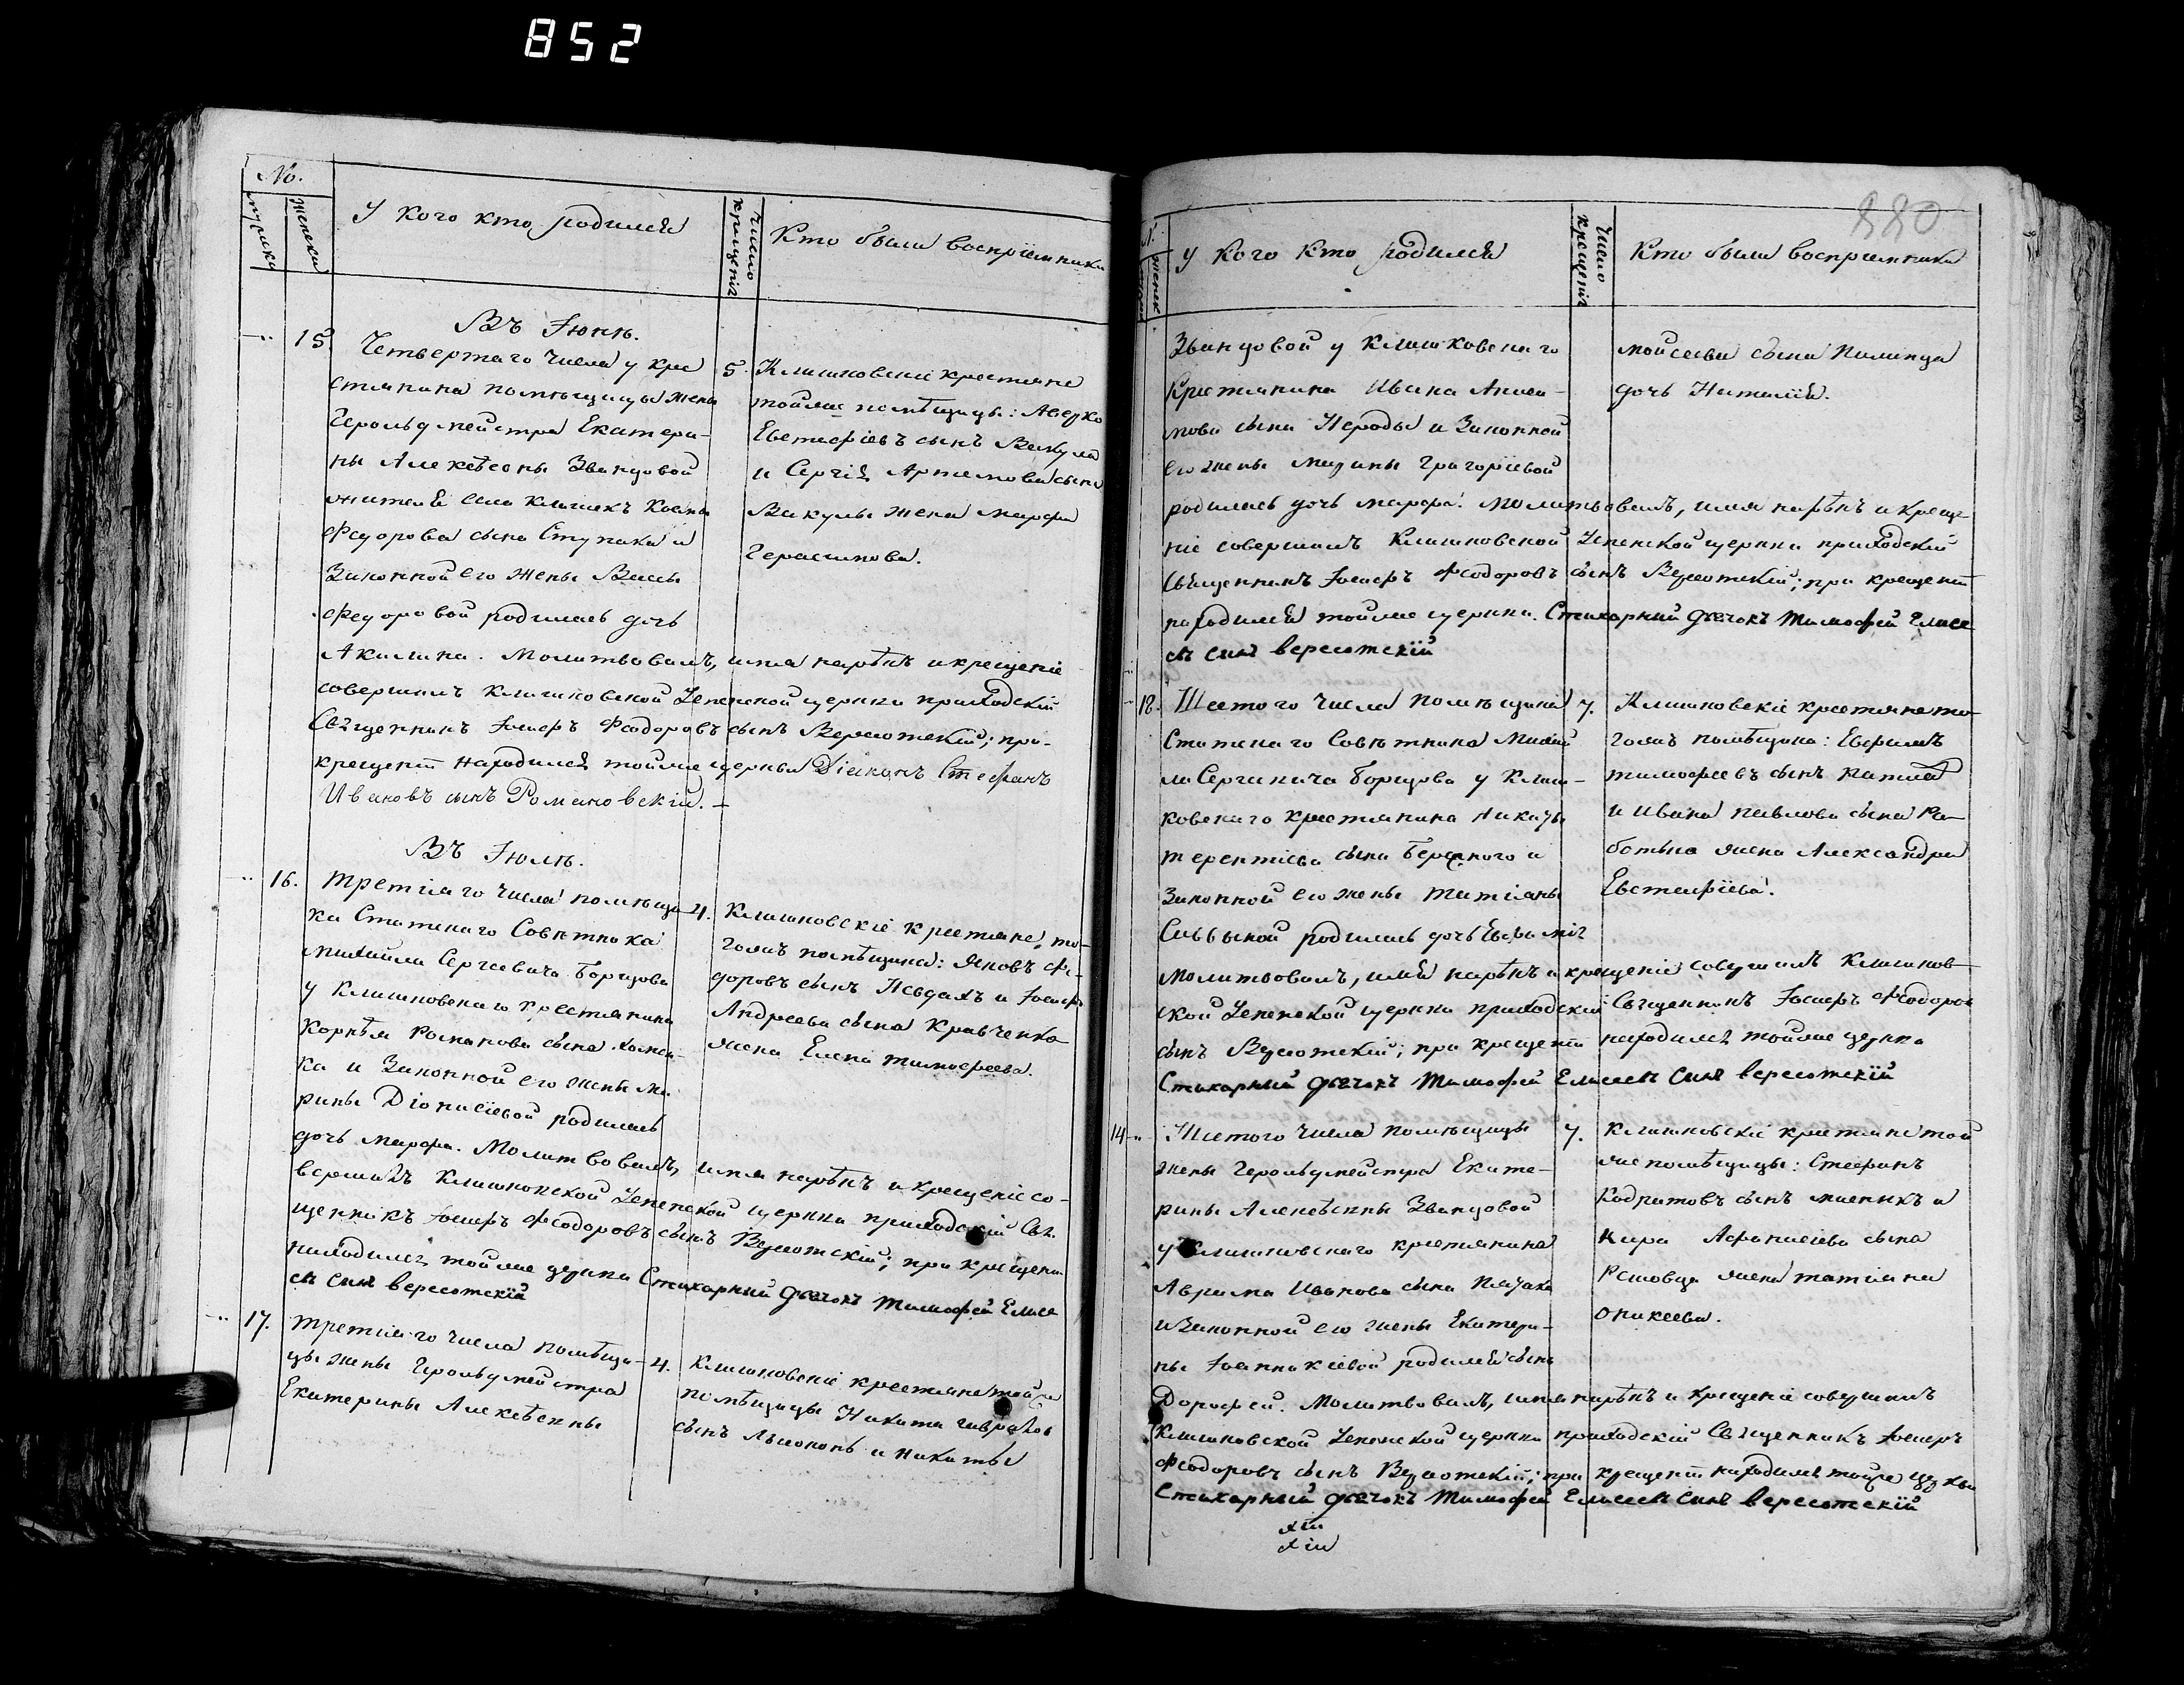 852
No.
мужеска
женска
У кого кто родился
Число крещенія
Кто были воспріемники
Въ Іюнѣ.
15.
Четвертаго числа у кре
стянина помѣщицы жены
Герольдмейстра Екатери-
ны Алексѣевны Званцовой
жителя села Клишекъ
Федорова сына Ступака и
Законной его жены Вассы
Федоровой родилась дочь
Акилина. Молитвовалъ, имя нарѣкъ и крещеніе
совершилъ Клишковской Успенской церкви приходскій
Священникъ Іосифъ Феодоровъ сынъ Вересотскій; при
крещеніи находился тойже церкви Діаконъ Стефанъ
Ивановъ сынъ Романовскій.
5.
Клишковскіе крестяне
тойже помѣщицы:
Евстафіевъ сынъ Вакула
и Сергія Артемова сына
Вакулы жена Марфа
Герасимова.
Въ Іюлѣ.
16.
Третіаго числа помѣщи
ка Статскаго Совѣтника
Михайла Сергеевича Борщова
у Клишковскаго крестянина
Корнѣя Романова сына
ка и Законной его жены Ма
рины Діонисіевой родилась
дочь Марфа. Молитвовалъ, имя нарѣкъ и крещеніе со-
вершилъ Клишковской Успенской церкви приходскій Свя
щенникъ Іосифъ Феодоровъ сынъ Вересотскій; при крещеніи
находился тойже церкви Стихарный дьячокъ Тимофей Елисе
евъ синъ вересотскїй
4.
Клишковскіе крестяне то-
гожъ помѣщика: Яковъ Фе-
доровъ сынъ и Іосифа
Андреева сына Кравченка
жена Елена Тимофеева.
17.
Третіаго числа помѣщи-
цы жены Герольдмейстра
Екатерины Алексѣевны
4.
Клишковскіе крестяне тойже
помѣщицы Никита
сынъ и Никиты
220
У кого кто родился
Число крещенія
Кто были воспріемники
Званцовой у Клишковскаго
Крестянина Ивана Аниси-
мова сына Нероды и Законной
его жены Марины Григоріевой
родилась дочь Марфа. Молитвовалъ, имя нарѣкъ и креще-
ніе совершилъ Клишковской Успенской церкви приходскій
Священникъ Іосифъ Феодоровъ сынъ Вересотскій; при крещеніи
находился тойже церкви Стихарный дьячокъ Тимофей Елисе
евъ синъ вересотскїй
Мойсеева сына
дочь Наталія.
18.
Шестого числа помѣщика
Статскаго Совѣтника Михай
ла Сергеевича Борщова у Клиш-
ковскаго крестянина Никиты
Терентіева сына и
Законной его жены Татіаны
Саввиной родилась дочь Евфиміа
Молитвовалъ, имя нарѣкъ и крещеніе совершилъ Клишков
ской Успенской церкви приходскій Священникъ Іосифъ Феодоровъ
сынъ Вересотскій; при крещеніи находился тойже церкви
Стихарный дьячокъ Тимофей Елисеевъ синъ вересотскїй
7.
Клишковскіе крестяне то-
гожъ помѣщика: Евфимъ
Тимофеевъ сынъ
и Ивана Павлова сына Ра-
ботька жена Александра
Евстафіева.
14
Шестого числа помѣщицы
жены Герольдмейстра Екате-
рины Алексѣевны Званцовой
у Клишковскаго крестянина
Аврама Иванова сына
и Законной его жены Екатери-
ны Іоанникіевой родился сынъ
Дорофей. Молитвовалъ, имя нарѣкъ и крещеніе совершилъ
Клишковской Успенской церкви приходскій Священникъ Іосифъ
Феодоровъ сынъ Вересотскій; при крещеніи находился тойже церкви
Стихарный дьячокъ Тимофей Елисеевъ синъ вересотскїй
7.
Клишковскіе крестяне той
же помѣщицы: Стефанъ
Кодратовъ сынъ и
Кира Афанасіева сына
жена Татіана
Оникеева.